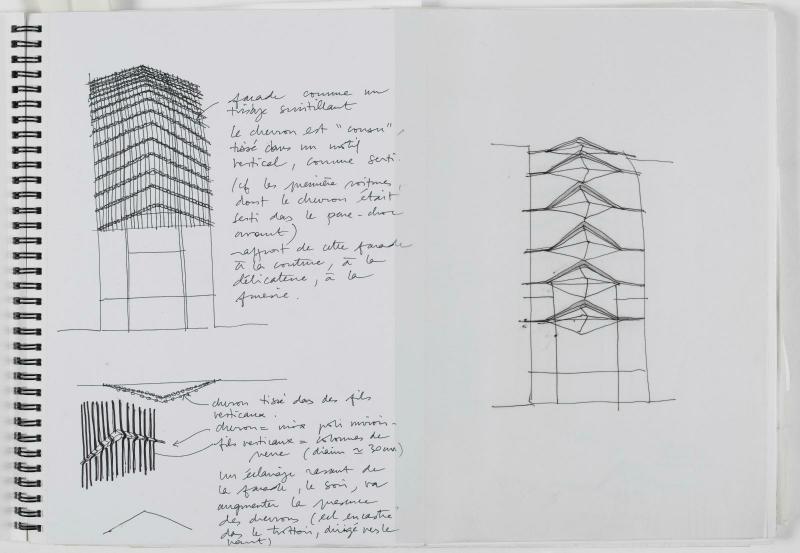 façade comme un
tissage scintillant
Le chevron est "cousu",
tissé dans un motif
vertical, comme serti.
(cf les première voitures,
dont le chevron était
serti das le pare-choc
avant)
rapport de cette façade
à la couture, à la
délicatesse, à la
finesse.
chevron tissé das des fils
verticaux.
chevron = inox poli miroir-
fils verticaux = colonnes de
verre (diam ≃ 30cm)
Un éclairage rasant de
la façade, le soir, va
augmenter la presence
des chevrons (ecl encastré
das le trottoir, dirigé vers le
haut)